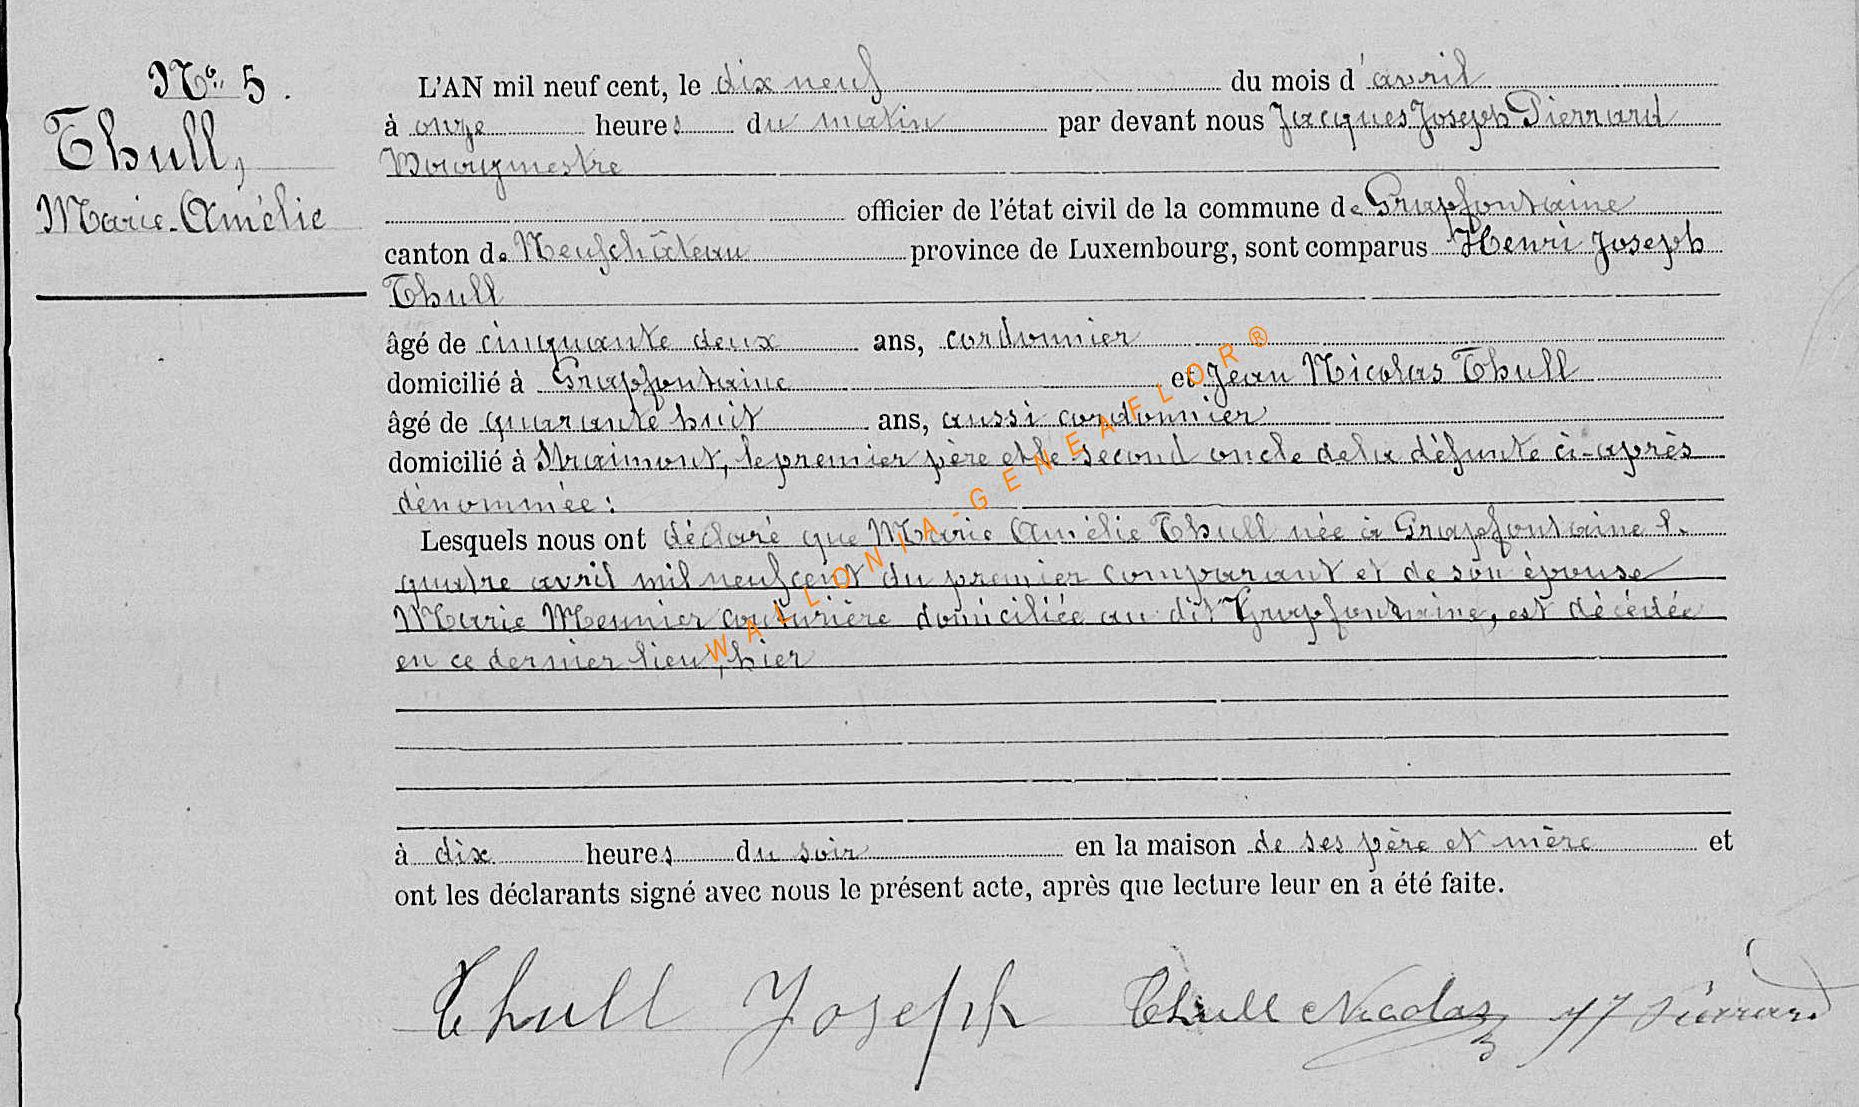 N° 5.
Thull,
Marie-Amélie
L'AN mil neuf cent, le dix neuf du mois d'avril
à onze heures du matin par devant nous Jacques Joseph Pierrard
Bourgmestre
officier de l'état civil de la commune de Grapfontaine
canton de Neufchâteau province de Luxembourg, sont comparus Henri Joseph
Thull
âgé de cinquante deux ans, cordonnier
domicilié à Grapfontaine et Jean Nicolas Thull
âgé de quarante huit ans, aussi cordonnier
domicilié à Straimont, le premier père et le second oncle de la défunte ci-après
dénommée :
Lesquels nous ont déclaré que Marie Amélie Thull née à Grapfontaine le
quatre avril mil neuf cent du premier comparant et de son épouse
Marie Meunier couturière domiciliée au dit Grapfontaine, est décédée
en ce dernier lieu, hier
à dix heures du soir en la maison de ses père et mère et
ont les déclarants signé avec nous le présent acte, après que lecture leur en a été faite.
Thull Joseph Thull Nicolas JJ Pierrard
WALLONIA-GENEAFLOR®